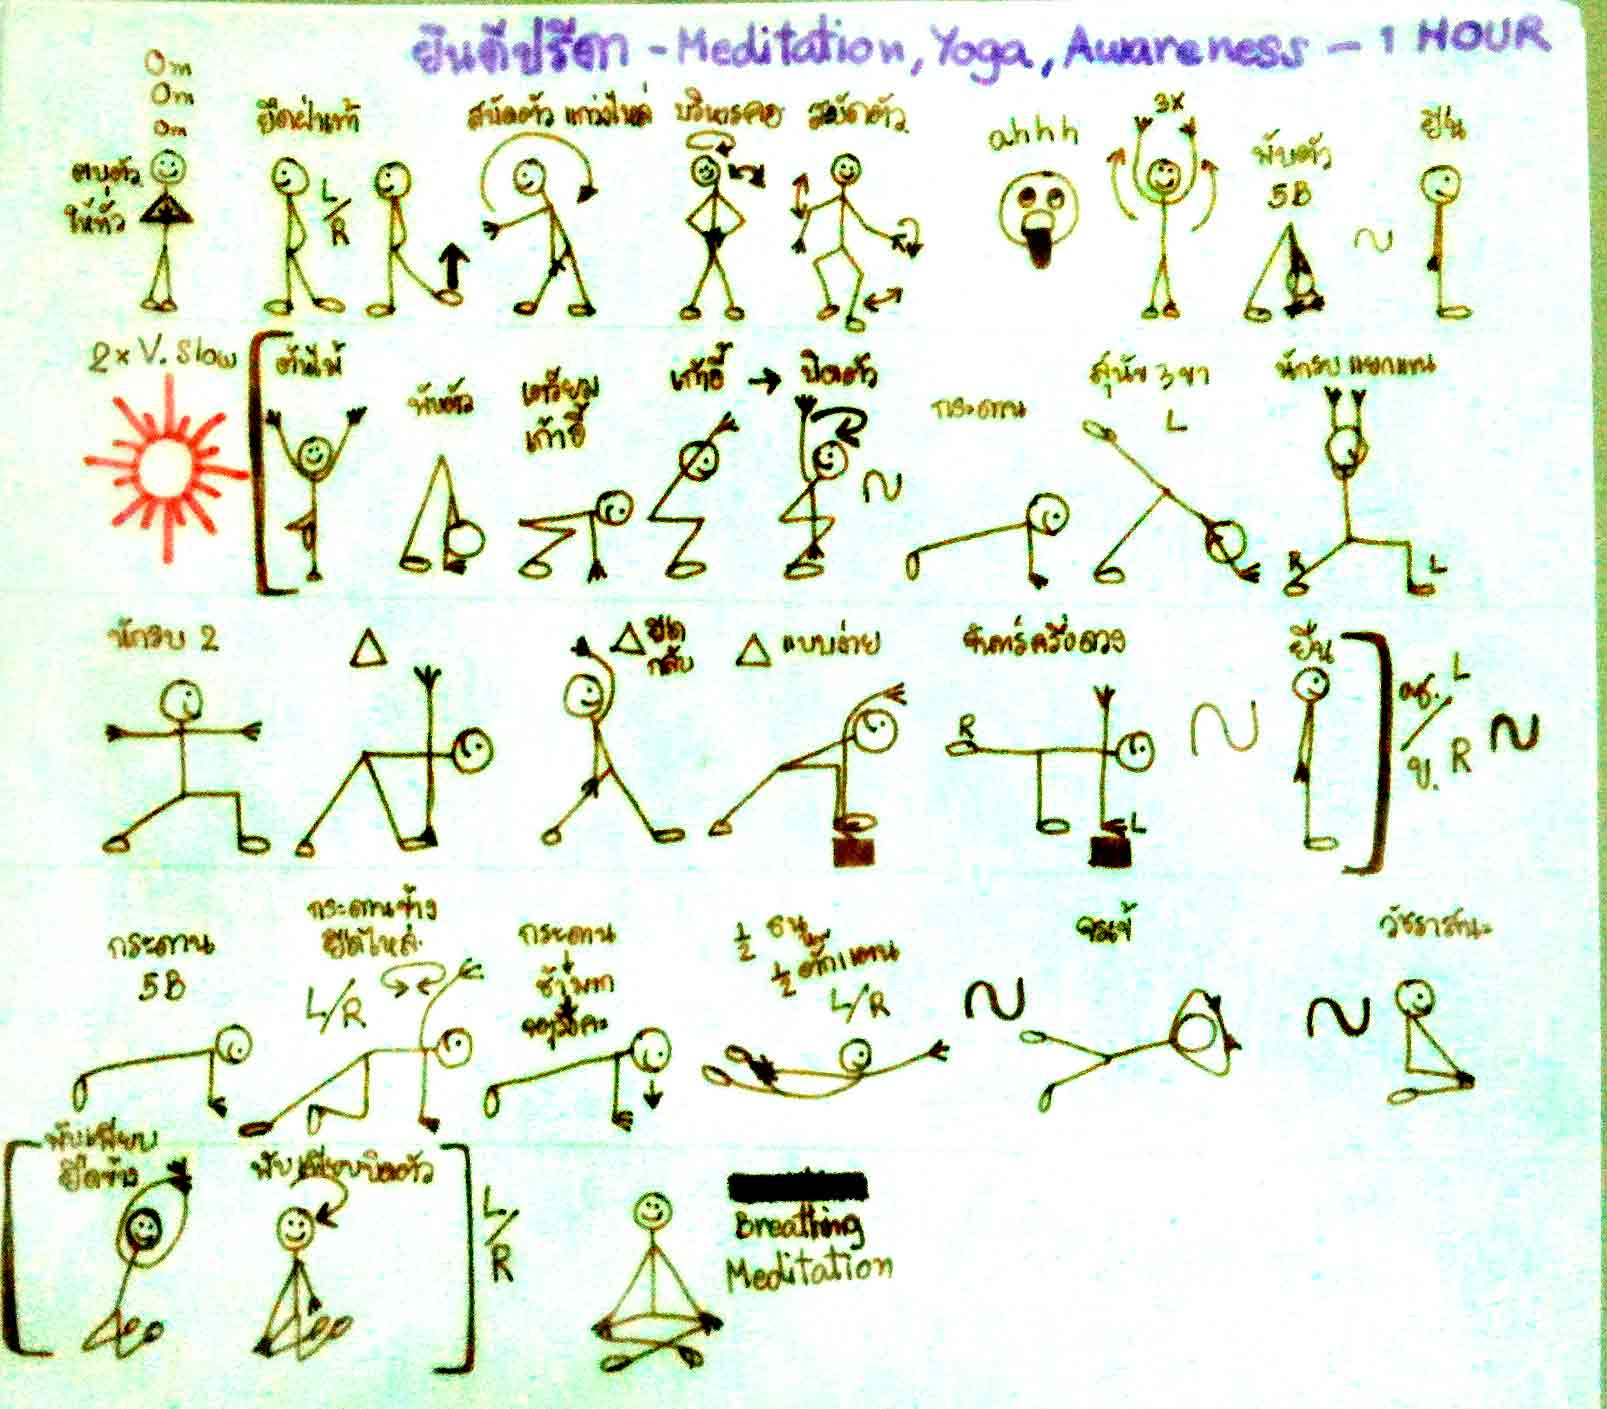 ยินดีปรีดา - Meditation, Yoga, Awareness - 1 HOUR
Om
Om
Om
ตบตัว
ให้ทั่ว
ยืดฝ่าเท้า
L/R
สบัดตัว แกว่งไหล่
บริหารคอ
สบัดตัว
ahhh
3x
พับตัว
5B
ยืน
2x V. Slow
ต้นไม้
พับตัว
เตรียม
เก้าอี้
เก้าอี้ → บิดตัว
กระดาน
สุนัข 3 ขา
L
นักรบ แยกแขน
R
L
นักรบ 2
△
△ ยืด
กลับ
△ แบบง่าย
จันทร์ครึ่งดวง
R
L
ยืน
L
ข. R
กระดาน
5B
กระดานข้าง
ยืดไหล่
L/R
กระดาน
↓
½ ธนู
½ ตั๊กแตน
L/R
จระเข้
วัชราสนะ
พับเพียบ
ยืดข้าง
พับเพียบบิดตัว
L/R
Breathing
Meditation